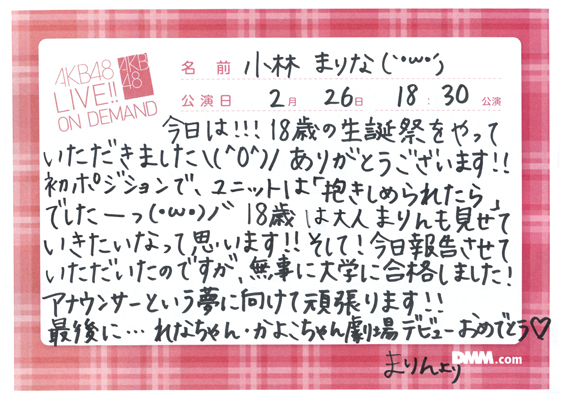 AKB48
LIVE!!
ON DEMAND
AKB
48
名前 小林 まりな(`・ω・´)
公演日 2月 26日 18:30 公演
今日は!!! 18歳の生誕祭をやって
いただきました\\(^O^)/ ありがとうございます!!
初ポジションで、ユニットは「抱きしめられたら」
でしたーっ(・ω・)ノ" 18歳は大人まりんも見せて
いきたいなって思います!! そして!今日報告させて
いただいたのですが、無事に大学に合格しました!
アナウンサーという夢に向けて頑張ります!!
最後に… れなちゃん・かよこちゃん劇場デビューおめでとう♡
まりんより
DMM.com